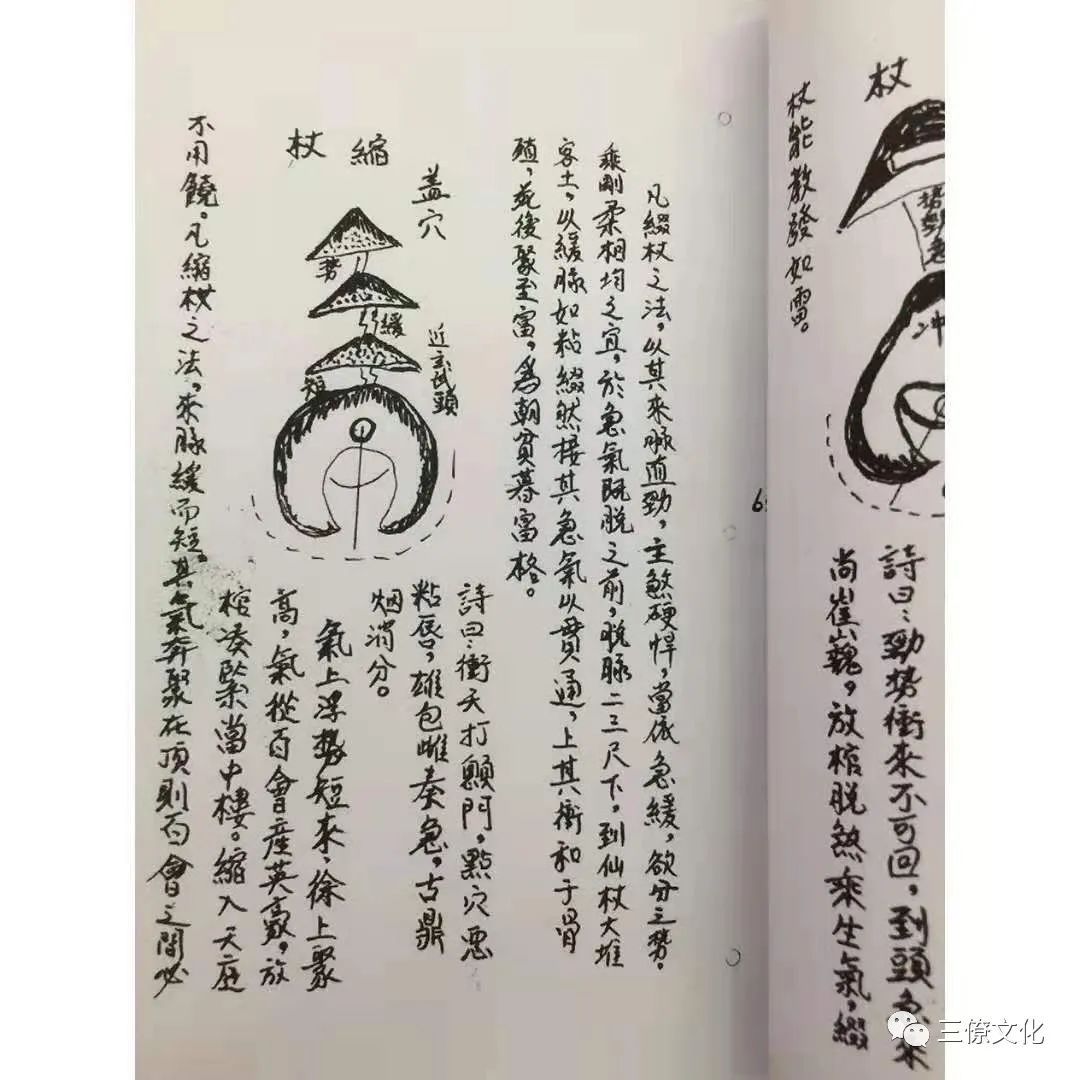 杖
杖能散發如雷。
势
急
冲
詩曰：勁势衝來不可回，到頭急來
尚崔巍，放棺脱煞乘生氣，綴
凡綴杖之法，以其来脉直勁，主煞硬悍，當依急緩，欲分之势。
乘剛柔相均之宜，於急氣既脱之前，脱脉二三尺下，到仙杖大堆
客土，以緩脉如粘綴然接其急氣以貫通，上其衝和于骨
殖，死後聚至富，為朝貧暮富格。
縮
杖
盖穴
势
緩
短
近玄武頭
詩曰：衝天打顖門，點穴恶
粘唇，雄包雌奏急，古鼎
烟消分。
氣上浮势短来，徐上聚
高，氣從百會産英豪，放
棺凑緊當中樓。縮入天庭
不用饒。凡縮杖之法，来脉緩而短。其氣奔聚在頂則百會之間必
三僚文化